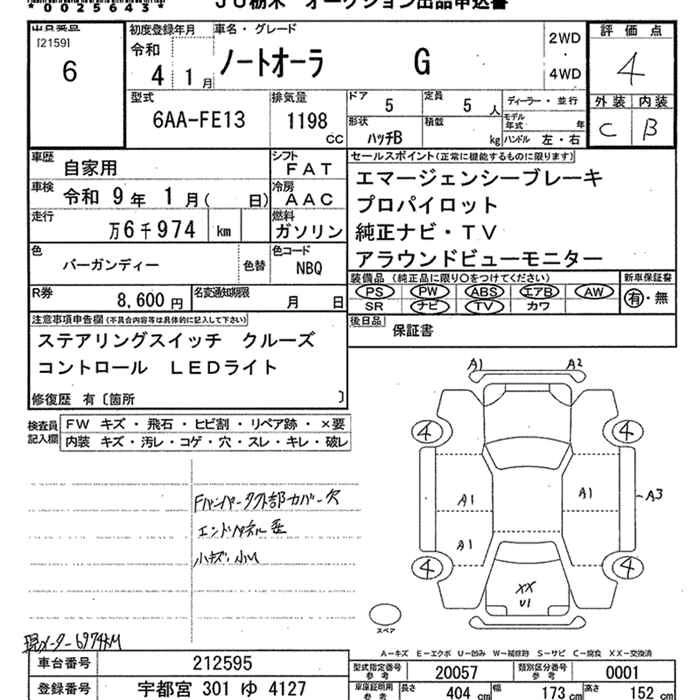 *0025643* JU栃木 オークション出品申込書
[2159]
6
初度登録年月
令和
4 1月
車名・グレード
ノートオーラ G
2WD
・
4WD
評価点
4
外装 内装
C B
型式
6AA-FE13
排気量
1198 CC
ドア 5
定員 5 人
形状 ハッチB
積載 kg
ディーラー・並行
モデル年式 年
ハンドル 左・右
車歴 自家用
シフト FAT
車検 令和 9年 1月( 日)
冷房 AAC
走行 万6千974 km
燃料 ガソリン
色 バーガンディー 色替
色コード NBQ
R券 8,600円
名変通知期限 月 日
セールスポイント(正常に機能するものに限ります)
エマージェンシーブレーキ
プロパイロット
純正ナビ・TV
アラウンドビューモニター
装備品 (純正品に限り○をつけてください)
PS PW ABS エアB AW
SR ナビ TV カワ
新車保証書
有・無
後日品 保証書
注意事項申告欄(不具合内容等は具体的に記入して下さい)
ステアリングスイッチ クルーズ
コントロール LEDライト
修復歴 有〔箇所 〕
検査員記入欄
FW キズ・飛石・ヒビ割・リペア跡・×要
内装 キズ・汚レ・コゲ・穴・スレ・キレ・破レ
Fバンパータクト部カバー欠
エンドパネル歪
小キズ・小U
現メーター6974KM
A1 A2
4 4
A1 A1 A3
A1
4 4
XX
U1
スペア
A-キズ E-エクボ U-凹み W-補修跡 S-サビ C-腐食 XX-交換済
車台番号 212595
登録番号 宇都宮 301 ゆ 4127
型式指定番号 参考 20057
類別区分番号 参考 0001
車庫証明用 参考 長さ 404 cm 幅 173 cm 高さ 152 cm